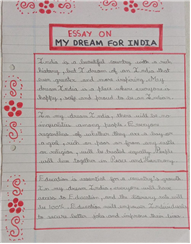 ESSAY ON
MY DREAM FOR INDIA
India is a beautiful country with a rich
history, but I dream of an India that is
even greater and more inspiring. My
dream India is a place where everyone is
happy, safe and proud to be an Indian.
In my dream India, there will be no
inequalities among people. Everyone
regardless of whether they are a boy or
a girl, rich or poor or from any caste
or religion, will be treated equally. People
will live together in Peace and Harmony.
Education is essential for a country's growth.
In my dream India, everyone will have
access to Education, and the literacy rate will
be 100%. Education will empower Individuals
to secure better jobs and improve their lives.